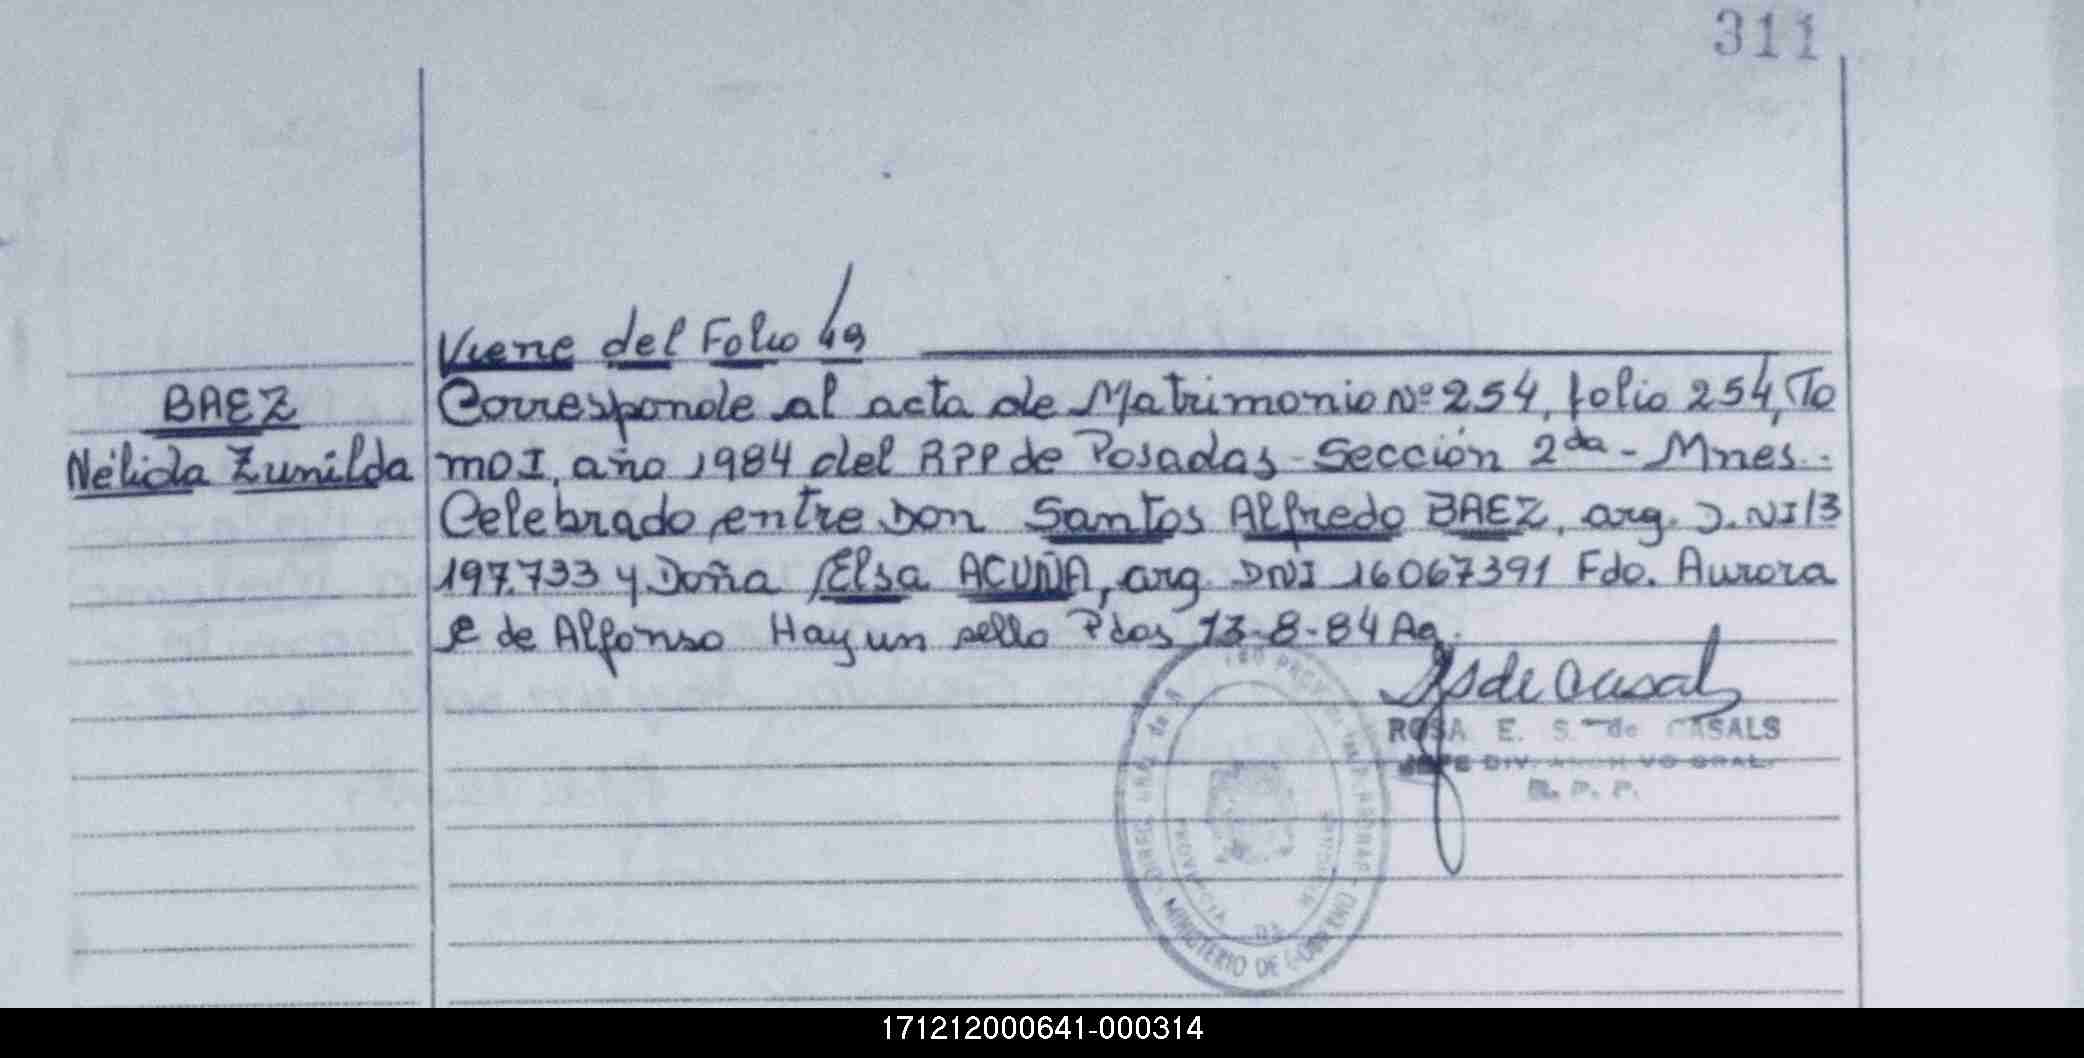 311
Viene del Folio 49
BAEZ
Nélida Zunilda
Corresponde al acta de Matrimonio Nº 254, folio 254, To
mo I, año 1984 del RPP de Posadas - Sección 2da - Mnes.-
Celebrado entre Don Santos Alfredo BAEZ, arg. D.NI 13
197.733 y Doña Elsa ACUÑA, arg. DNI 16067391 Fdo. Aurora
e de Alfonso Hay un sello Pdas 13-8-84 Ag.
ROSA E. S. de CASALS
JEFE DIV. ARCHIVO GRAL.
R. P. P.
MINISTERIO DE GOBIERNO
PROVINCIA DE MISIONES
171212000641-000314